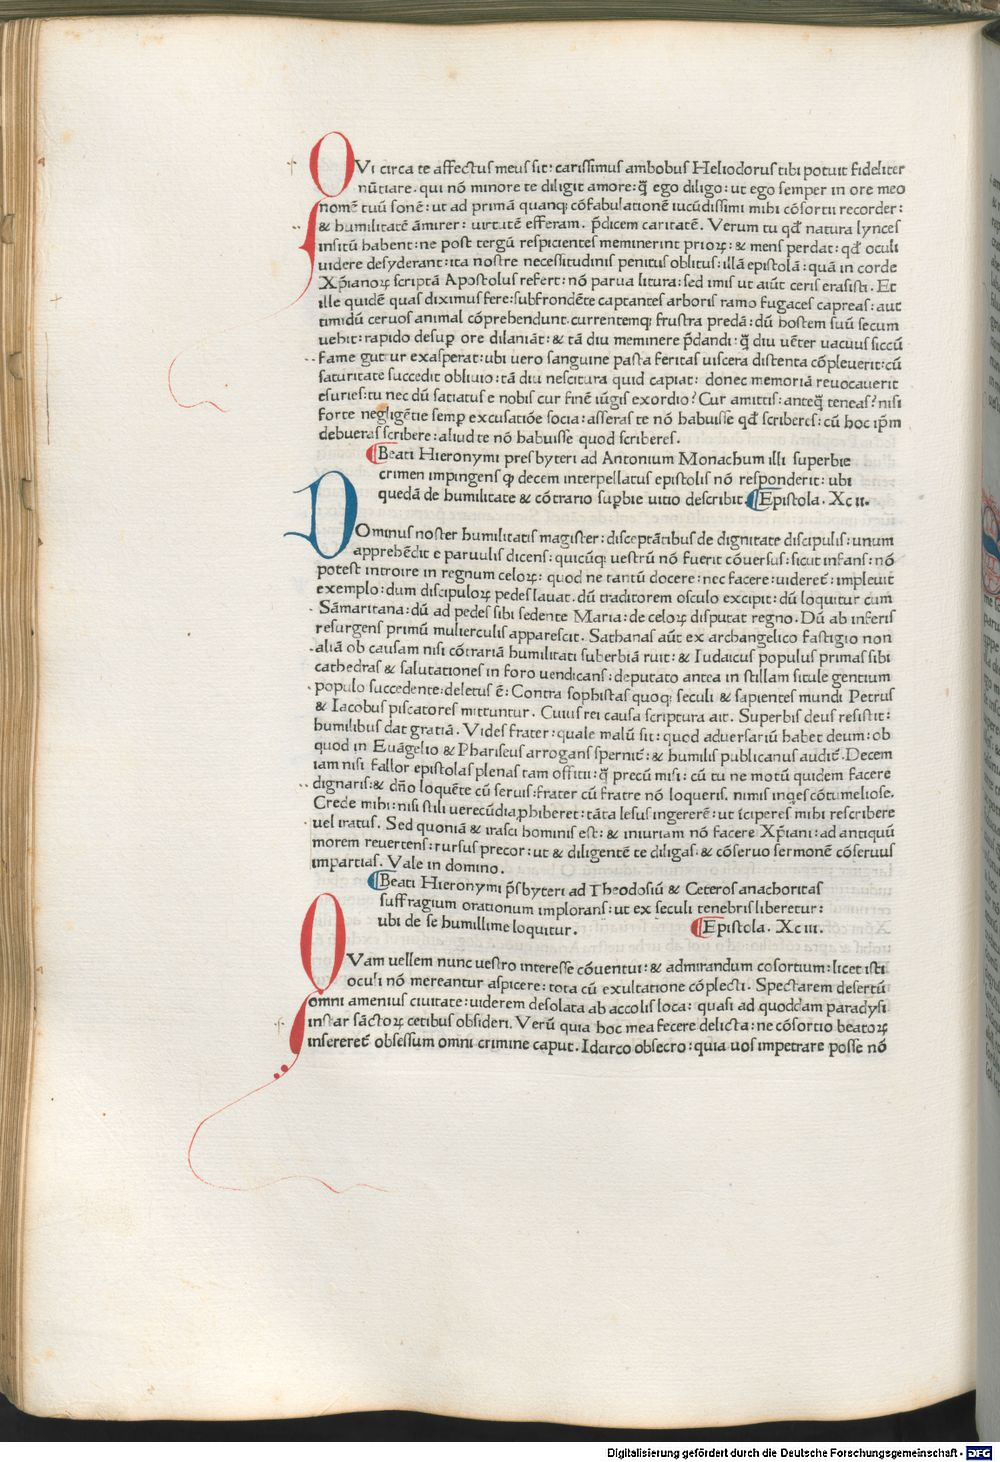 QVi circa te affectus meus sit: carissimus ambobus Heliodorus tibi potuit fideliter
nūtiare. qui nō minore te diligit amore: q̄ ego diligo: ut ego semper in ore meo
nomē tuū sonē: ut ad primā quanqꝫ cōfabulationē iucūdissimi mihi cōsortii recorder:
& humilitatē āmirer: uirtutē efferam. p̄dicem caritatē. Verum tu qd̄ natura lynces
insitū habent: ne post tergū respicientes meminerint prioꝝ: & mens perdat: qd̄ oculi
uidere desyderant: ita nostre necessitudinis penitus oblitus: illā epistolā: quā in corde
Xp̄ianoꝝ scriptā Apostolus refert: nō parua litura: sed imis ut aiūt ceris erasisti. Et
ille quidē quas diximus fere: sub frondēte captantes arboris ramo fugaces capreas: aut
timidū ceruos animal cōprehendunt. currentemqꝫ frustra predā: dū hostem suū secum
uehit: rapido desuꝑ ore dilaniāt: & tā diu meminere p̄dandi: q̄ diu uēter uacuus siccū
fame guttur exasperat: ubi uero sanguine pasta feritas uiscera distenta cōpleuerit: cū
saturitate succedit obliuio: tā diu nescitura quid capiat: donec memoriā reuocauerit
esuries: tu nec dū satiatus e nobis cur finē iūgis exordio? Cur amittis: anteq̄ teneas? nisi
forte negligētie semꝑ excusatiōe socia: asseras te nō habuisse qd̄ scriberes: cū hoc ip̄m
debueras scribere: aliud te nō habuisse quod scriberes.
¶Beati Hieronymi presbyteri ad Antonium Monachum illi superbie
crimen impingens ꝙ decem interpellatus epistolis nō responderit: ubi
quedā de humilitate & cōtrario suꝑbie uitio describit. ¶Epistola. Xcii.
DOminus noster humilitatis magister: disceptātibus de dignitate discipulis: unum
apprehēdit e paruulis dicens: quicūqꝫ uestrū nō fuerit cōuersus: sicut infans: nō
potest introire in regnum celoꝝ: quod ne tantū docere: nec facere: uideret̄: impleuit
exemplo: dum discipuloꝝ pedes lauat. dū traditorem osculo excipit: dū loquitur cum
Samāritana: dū ad pedes sibi sedente Maria: de celoꝝ disputat regno. Dū ab inferis
resurgens primū mulierculis apparescit. Sathanas aūt ex archangelico fastigio non
aliā ob causam nisi cōtrariā humilitati suberbiā ruit: & Iudaicus populus primas sibi
cathedras & salutationes in foro uendicans: deputato antea in stillam situle gentium
populo succedente: deletus ē: Contra sophistas quoqꝫ seculi & sapientes mundi Petrus
& Iacobus piscatores mittuntur. Cuius rei causa scriptura ait. Superbis deus resistit:
humilibus dat gratiā. Vides frater: quale malū sit: quod aduersariū habet deum: ob
quod in Euāgelio & Phariseus arrogans spernit̄: & humilis publicanus audit̄. Decem
iam nisi fallor epistolas plenas tam officii: q̄ precū misi: cū tu ne motū quidem facere
dignaris: & dn̄o loquēte cū seruis: frater cū fratre nō loqueris. nimis inqes cōtumeliose.
Crede mihi: nisi stili uerecūdia ꝓhiberet: tāta lesus ingererē: ut īciperes mihi rescribere
uel iratus. Sed quoniā & irasci hominis est: & iniuriam nō facere Xp̄iani: ad antiquū
morem reuertens: rursus precor: ut & diligentē te diligas. & cōseruo sermonē cōseruus
impartias. Vale in domino.
¶Beati Hieronymi p̄sbyteri ad Theodosiū & Ceteros anachoritas
suffragium orationum implorans: ut ex seculi tenebris liberetur:
ubi de se humillime loquitur. ¶Epistola. Xciii.
QVam uellem nunc uestro interesse cōuentui: & admirandum cosortium: licet isti
oculi nō mereantur aspicere: tota cū exultatione cōplecti. Spectarem desertū
omni amenius ciuitate: uiderem desolata ab accolis loca: quasi ad quoddam paradysi
instar sāctoꝝ cetibus obsideri. Verū quia hoc mea fecere delicta: ne cōsortio beatoꝝ
insereret̄ obsessum omni crimine caput. Idcirco obsecro: quia uos impetrare posse nō
Digitalisierung gefördert durch die Deutsche Forschungsgemeinschaft - DFG